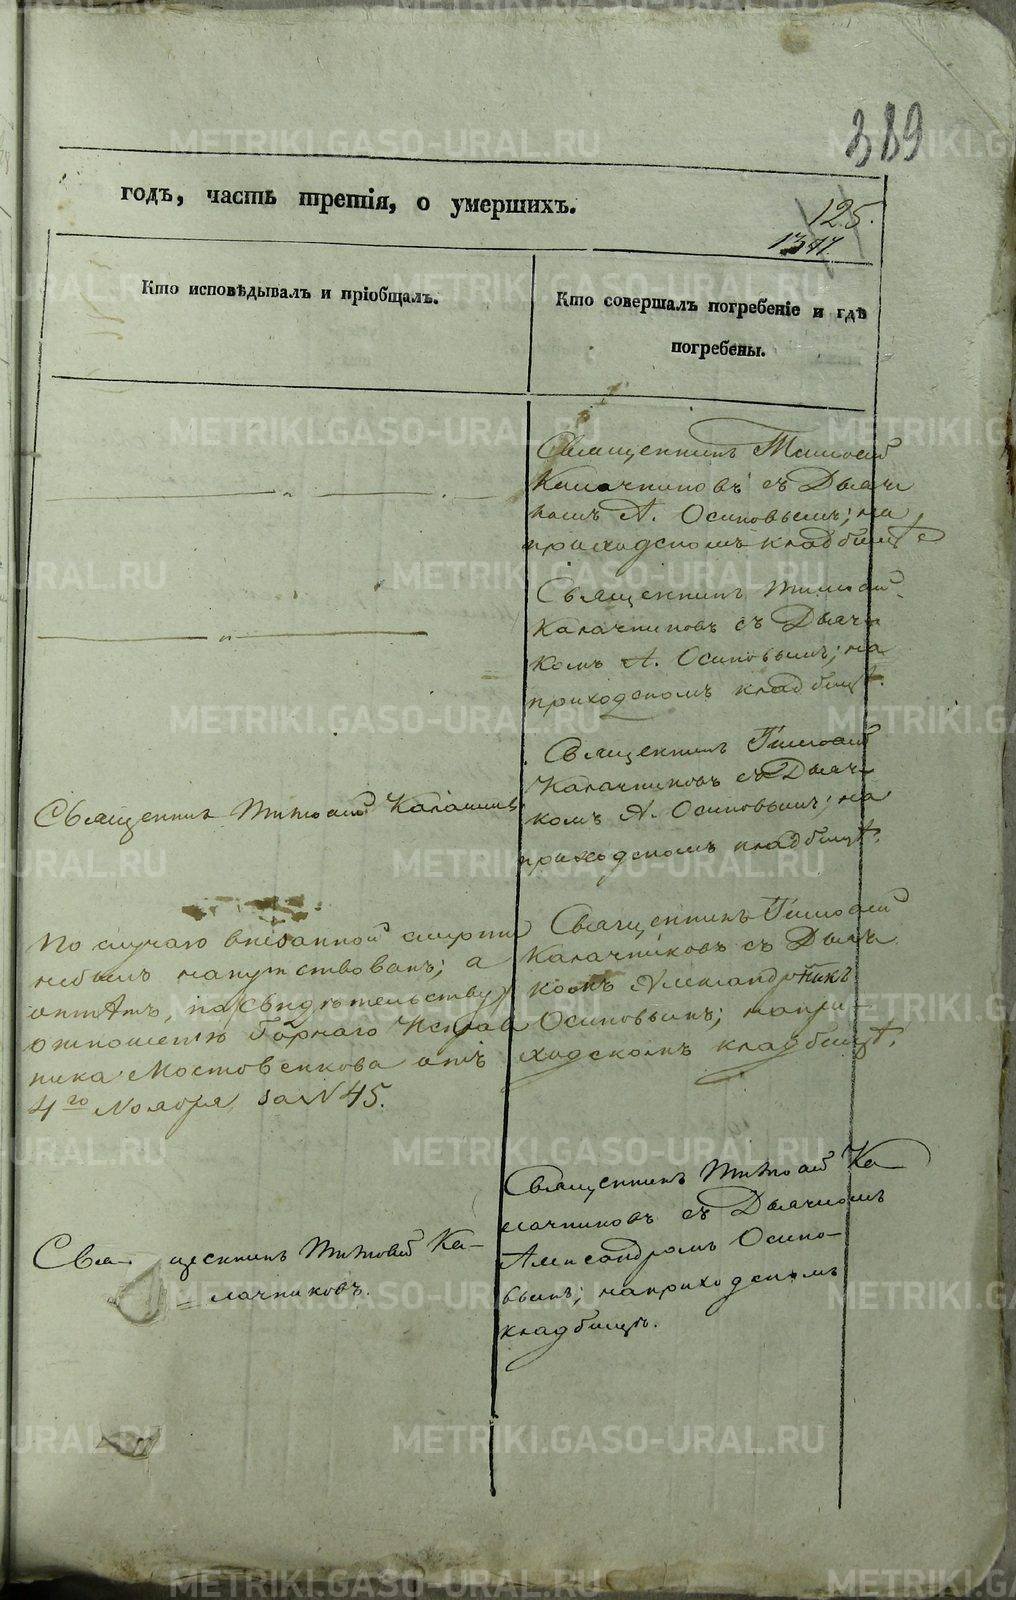 389
годъ, часть третія, о умершихъ.
125.
Кто исповѣдывалъ и пріобщалъ.
Кто совершалъ погребеніе и гдѣ
погребены.
Священникъ Тимоѳей
Калачниковъ съ Дьяч
комъ А. Осиповымъ; на
приходскомъ кладбищѣ
Священникъ Тимоѳей
Калачниковъ съ Дьяч
комъ А. Осиповымъ; на
приходскомъ кладбищѣ.
Священникъ Тимоѳей Калачник
Священникъ Тимоѳей
Калачниковъ съ Дьяч
комъ А. Осиповымъ; на
приходскомъ кладбищѣ.
По случаю внезапной смерти
небылъ напутствованъ; а
отпѣтъ, по свидѣтельству
отношенію Горнаго Исправ
ника Мостовенкова отъ
4го Ноября за N 45.
Священникъ Тимоѳей
Калачниковъ съ Дьяч
комъ Александромъ
Осиповымъ; напри-
ходскомъ кладбищѣ.
Свя- щенникъ Тимоѳей Ка-
= лачниковъ.
Священникъ Тимоѳей Ка
лачниковъ съ Дьячкомъ
Александромъ Осипо-
вымъ; наприходскомъ
кладбищѣ.
METRIKI.GASO-URAL.RU